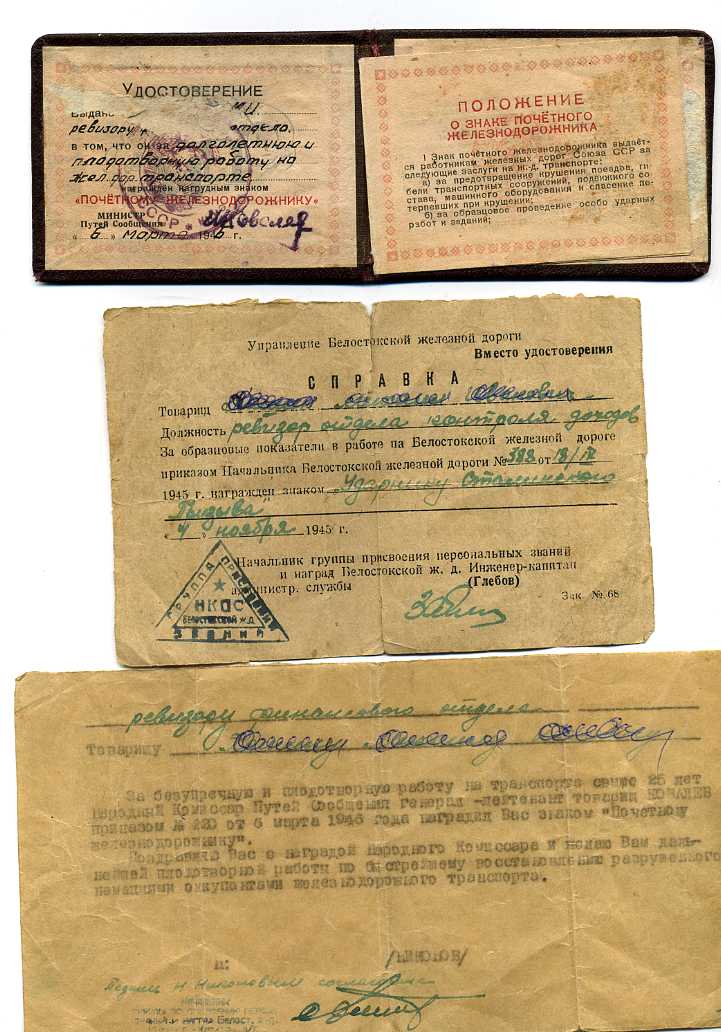 УДОСТОВЕРЕНИЕ
Выдано
ревизору отдела
в том, что он за долголетнюю и
плодотворную работу на
жел. дор. транспорте
награждён нагрудным знаком
«ПОЧЁТНОМУ ЖЕЛЕЗНОДОРОЖНИКУ»
МИНИСТР
Путей Сообщения
СССР
„6„ марта 1946 г.
ПОЛОЖЕНИЕ
О ЗНАКЕ ПОЧЁТНОГО
ЖЕЛЕЗНОДОРОЖНИКА
1) Знак почётного железнодорожника выдаёт-
ся работникам железных дорог Союза ССР за
следующие заслуги на ж.-д. транспорте:
а) за предотвращение крушения поездов, ги-
бели транспортных сооружений, подвижного со-
става, машинного оборудования и спасение по-
терпевших при крушении;
б) за образцовое проведение особо ударных
работ и заданий;
Управление Белостокской железной дороги
Вместо удостоверения
СПРАВКА
Товарищ
Должность ревизор отдела контроля доходов
За образцовые показатели в работе на Белостокской железной дороге
приказом Начальника Белостокской железной дороги № 388 от 18/IV
1945 г. награжден знаком „Ударнику Сталинского
„ ноября 1945 г.
Начальник группы присвоения персональных званий
и наград Белостокской ж. д. Инженер-капитан
администр. службы (Глебов)
Зак. № 68
ГРУППА ПРИСВОЕНИЯ
НКПС
БЕЛОСТОКСКОЙ Ж.Д.
ЗВАНИЙ
ревизору финансового отдела
Товарищу
За безупречную и плодотворную работу на транспорте свыше 25 лет
Народный Комиссар Путей Сообщения Генерал-лейтенант товарищ КОВАЛЕВ
приказом № 220 от 6 марта 1946 года наградил Вас знаком "Почетному
железнодорожнику".
Поздравляю Вас с наградой Народного Комиссара и желаю Вам даль-
нейшей плодотворной работы по быстрейшему восстановлению разрушенного
немецкими оккупантами железнодорожного транспорта.